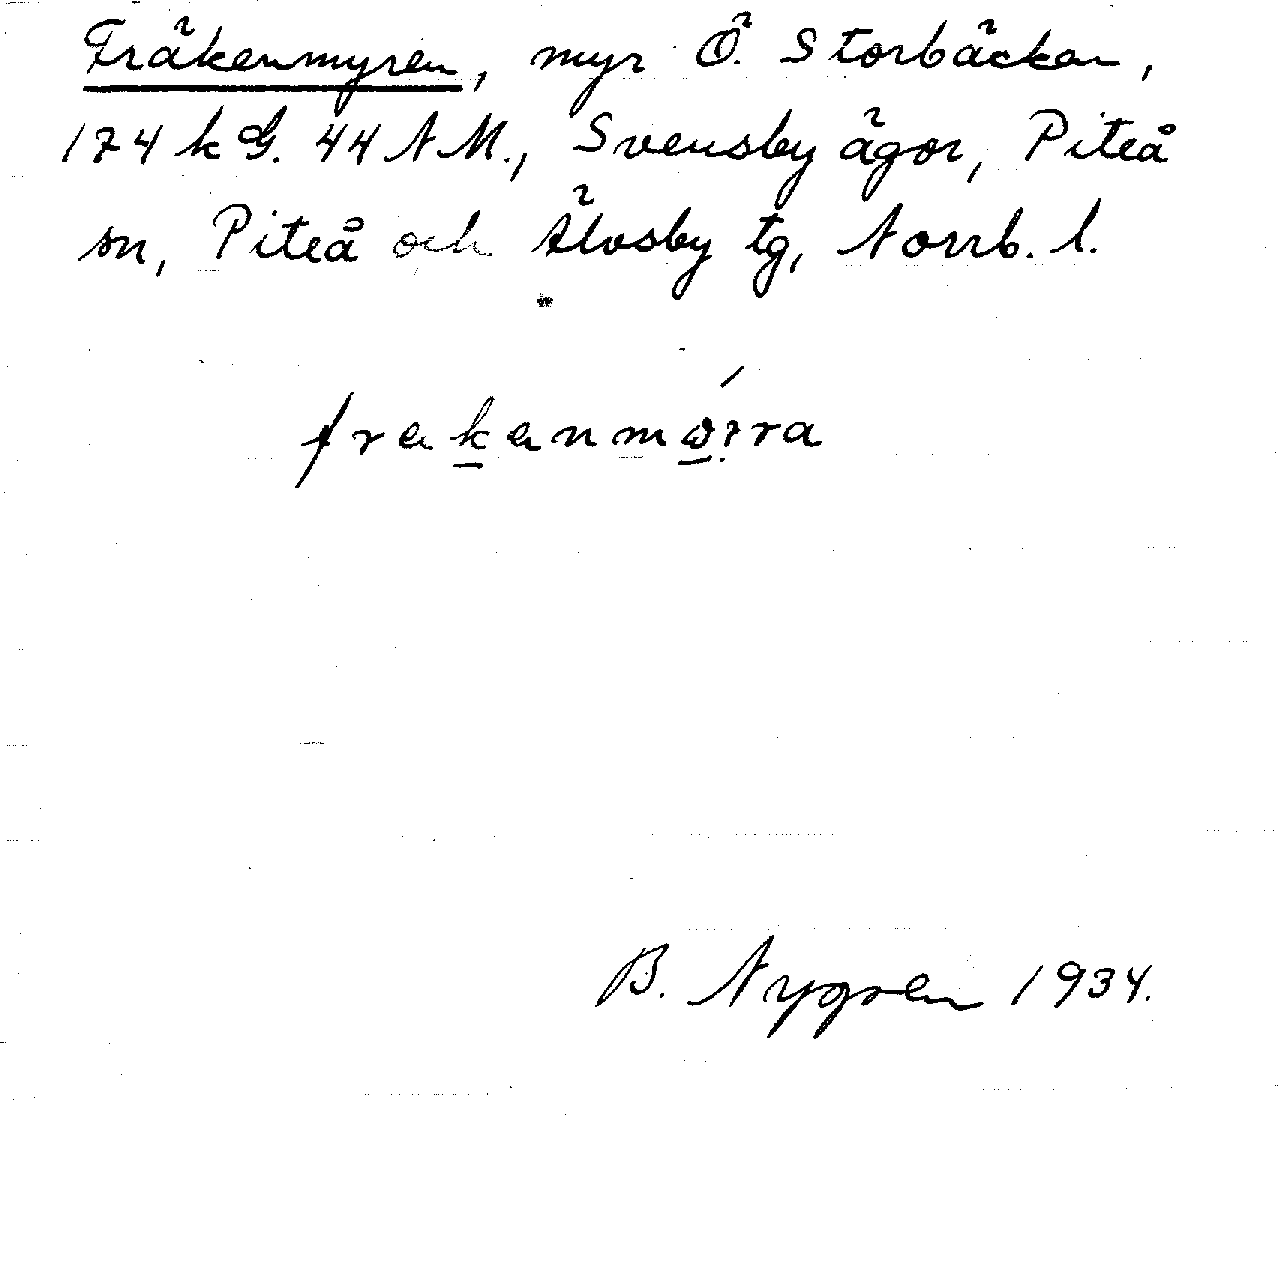 Fräkenmyren, myr Ö. Storbäcken,
174 kG. 44 NM., Svensby ägor, Piteå
sn, Piteå och Älvsby tg, Norrb. l.
B. Nygren 1934.